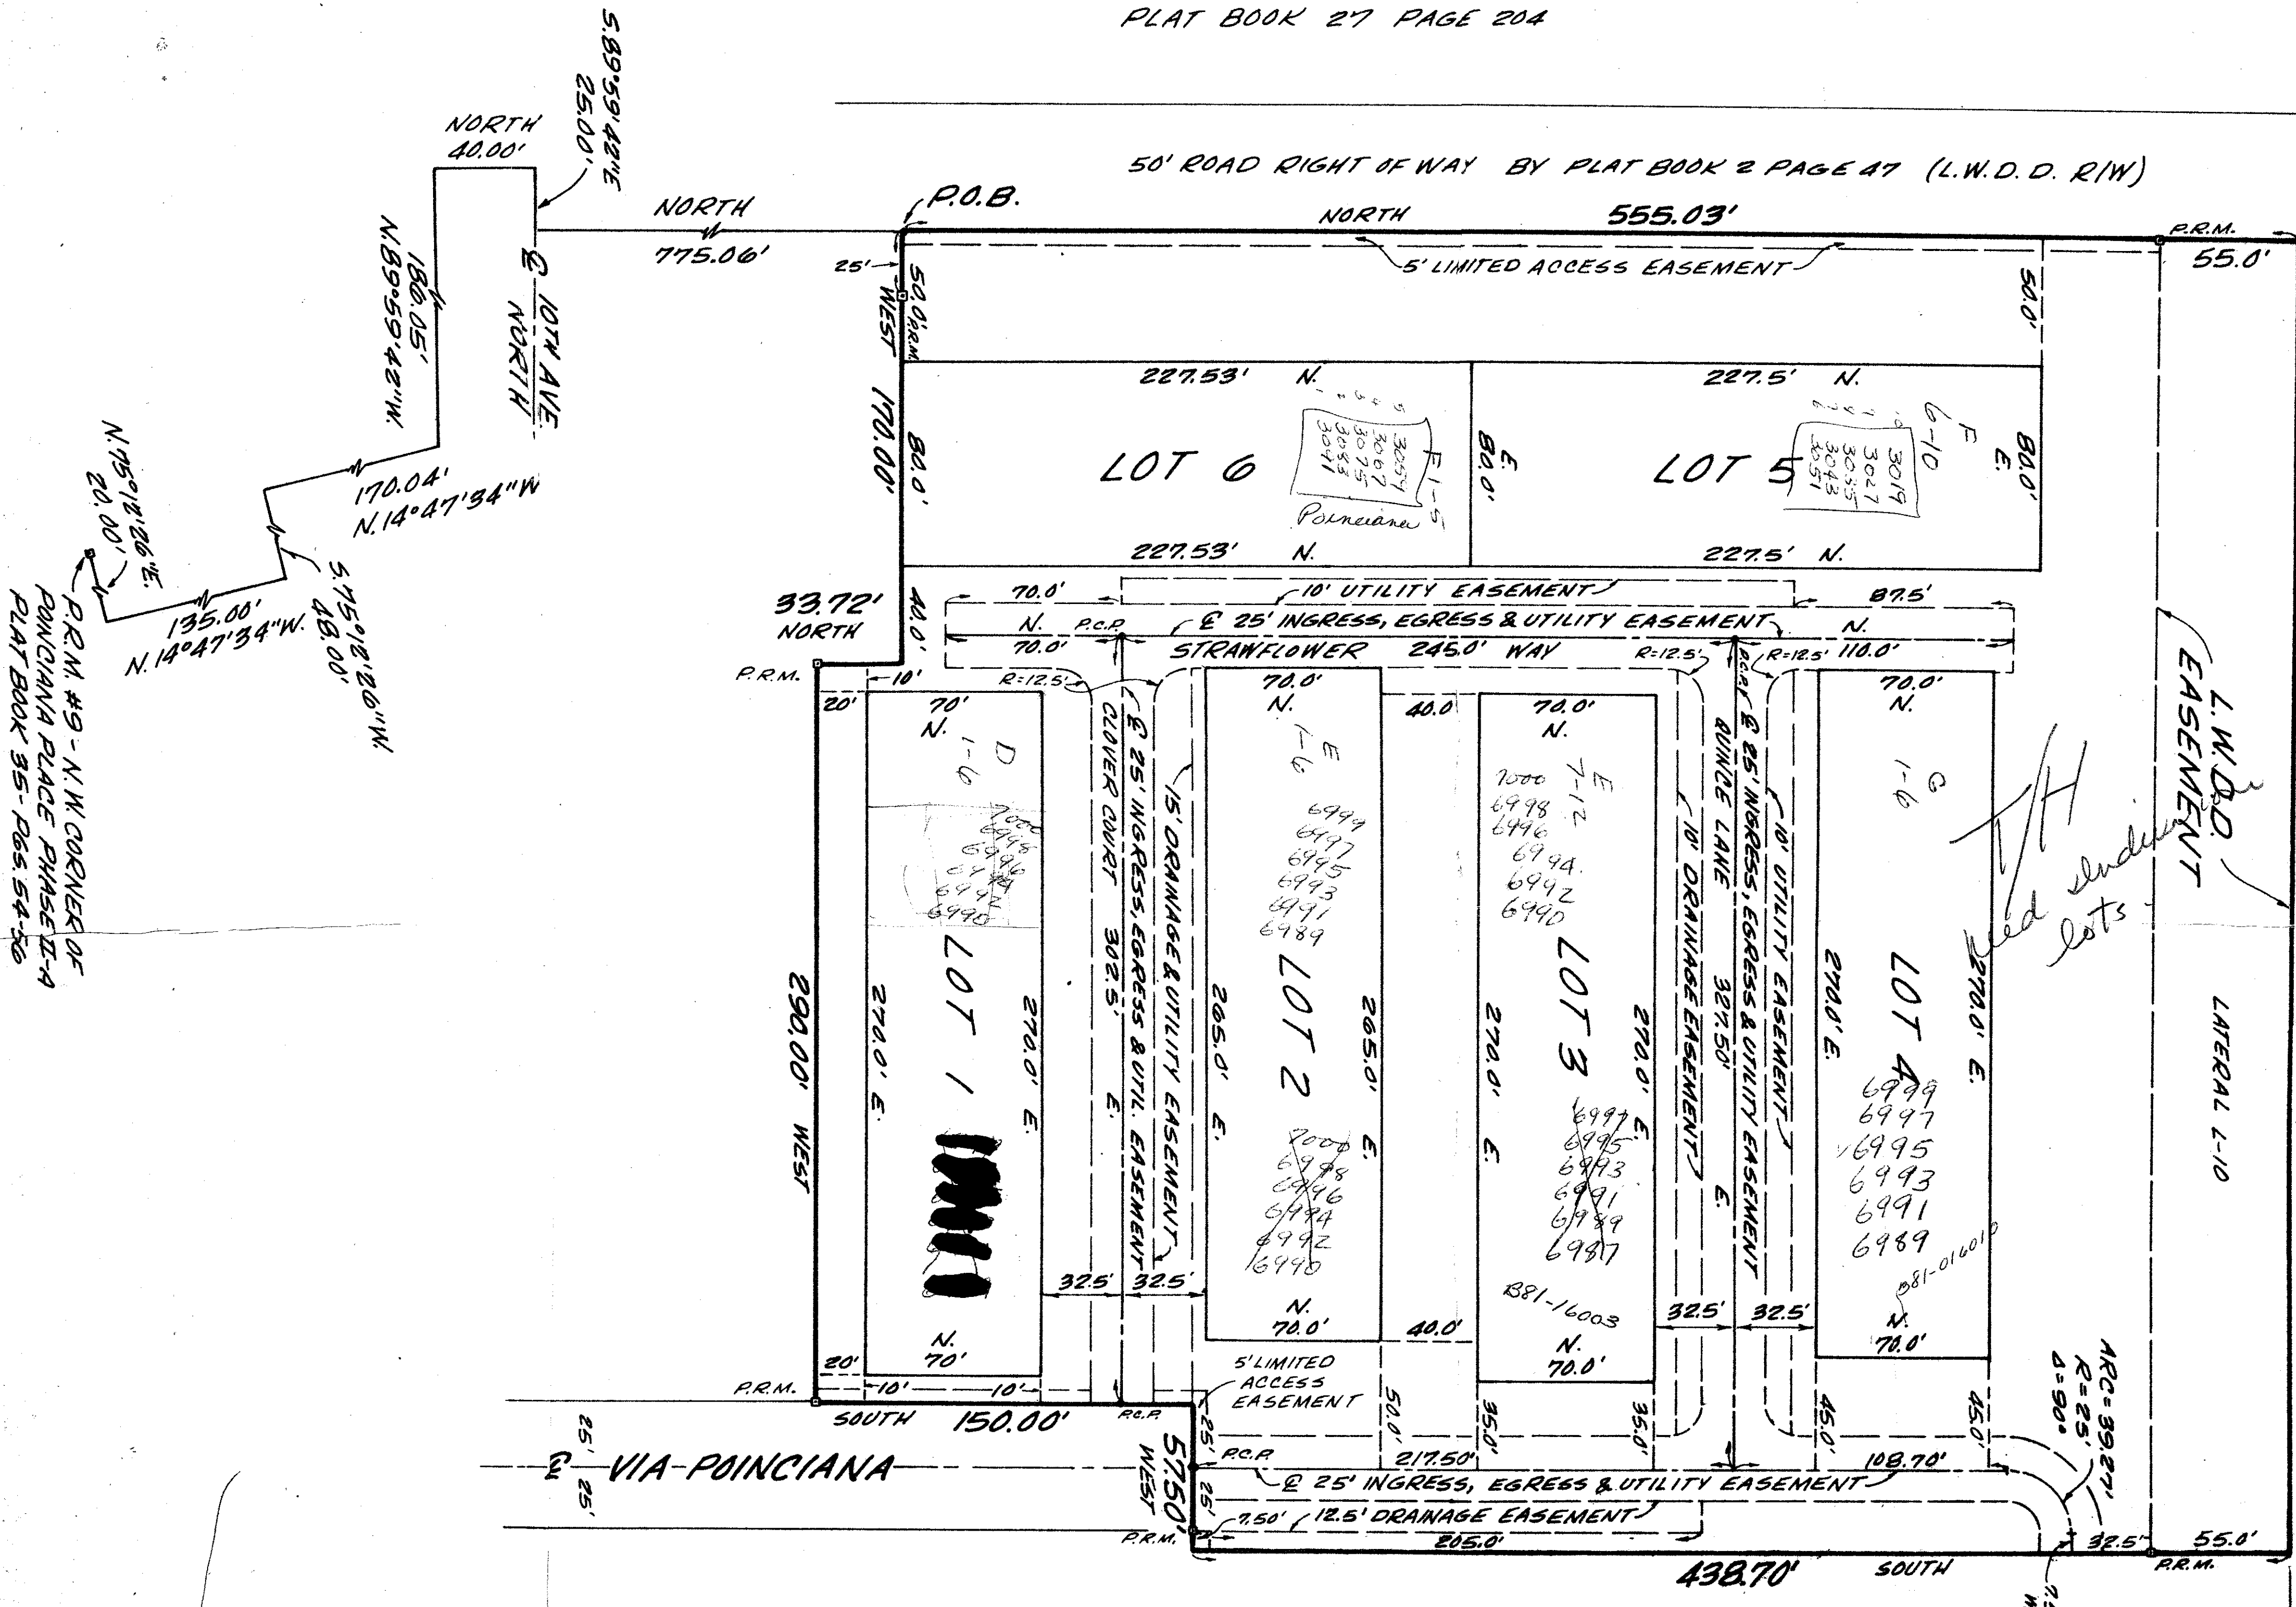 PLAT BOOK 27 PAGE 204
50' ROAD RIGHT OF WAY BY PLAT BOOK 2 PAGE 47 (L.W.D.D. R/W)
S.89°59'42"E
25.00'
NORTH
40.00'
NORTH
775.06'
P.O.B.
NORTH 555.03'
P.R.M.
55.0'
5' LIMITED ACCESS EASEMENT
25'
50.0' P.R.M.
WEST
170.00'
50.0'
186.05'
N.89°59'42"W.
℄ 10TH AVE.
NORTH
170.04'
N.14°47'34"W
S.75°12'26"W.
48.00'
135.00'
N.14°47'34"W.
N.75°12'26"E.
20.00'
P.R.M. #9 - N.W. CORNER OF
POINCIANA PLACE PHASE II-A
PLAT BOOK 35 - PGS. 54-56
227.53' N.
80.0'
LOT 6
5 3059
4 3067
3 3075
2 3083
1 3091
F 1-5
Poinciana
227.53' N.
E.
80.0'
227.5' N.
LOT 5
10 3019
9 3027
8 3035
7 3043
6 3051
F
6-10
80.0'
E.
227.5' N.
33.72'
NORTH
40.0'
70.0'
10' UTILITY EASEMENT
87.5'
N.
P.C.P.
℄ 25' INGRESS, EGRESS & UTILITY EASEMENT
N.
70.0'
STRAWFLOWER 245.0' WAY
R=12.5'
P.C.P.
R=12.5'
110.0'
P.R.M.
10'
R=12.5'
20'
70'
N.
D
1-6
7000
6998
6996
6994
6992
6990
LOT 1
270.0' E.
270.0' E.
290.00' WEST
N.
70'
20'
10'
10'
P.R.M.
SOUTH 150.00'
P.C.P.
℄ 25' INGRESS, EGRESS & UTIL. EASEMENT
CLOVER COURT 302.5' E.
15' DRAINAGE & UTILITY EASEMENT
32.5' 32.5'
70.0'
N.
E
1-6
6999
6997
6995
6993
6991
6989
LOT 2
265.0' E.
265.0' E.
7000
6998
6996
6994
6992
6990
N.
70.0'
40.0'
40.0'
70.0'
N.
E
7-12
7000
6998
6996
6994
6992
6990
LOT 3
270.0' E.
270.0' E.
6997
6995
6993
6991
6989
6987
B81-16003
N.
70.0'
10' DRAINAGE EASEMENT
QUINCE LANE 327.50' E.
℄ 25' INGRESS, EGRESS & UTILITY EASEMENT
10' UTILITY EASEMENT
32.5' 32.5'
70.0'
N.
G
1-6
LOT 4
270.0' E.
270.0' E.
6999
6997
6995
6993
6991
6989
B81-016010
N.
70.0'
T/H
need
lots
L.W.D.D.
EASEMENT
LATERAL L-10
5' LIMITED
ACCESS
EASEMENT
50.0'
35.0'
35.0'
45.0'
45.0'
ARC=39.27'
R=25'
Δ=90°
25'
25'
℄ VIA POINCIANA
57.50'
WEST
25'
25'
P.C.P.
217.50'
108.70'
℄ 25' INGRESS, EGRESS & UTILITY EASEMENT
7.50'
12.5' DRAINAGE EASEMENT
P.R.M.
205.0'
32.5'
55.0'
438.70' SOUTH
P.R.M.